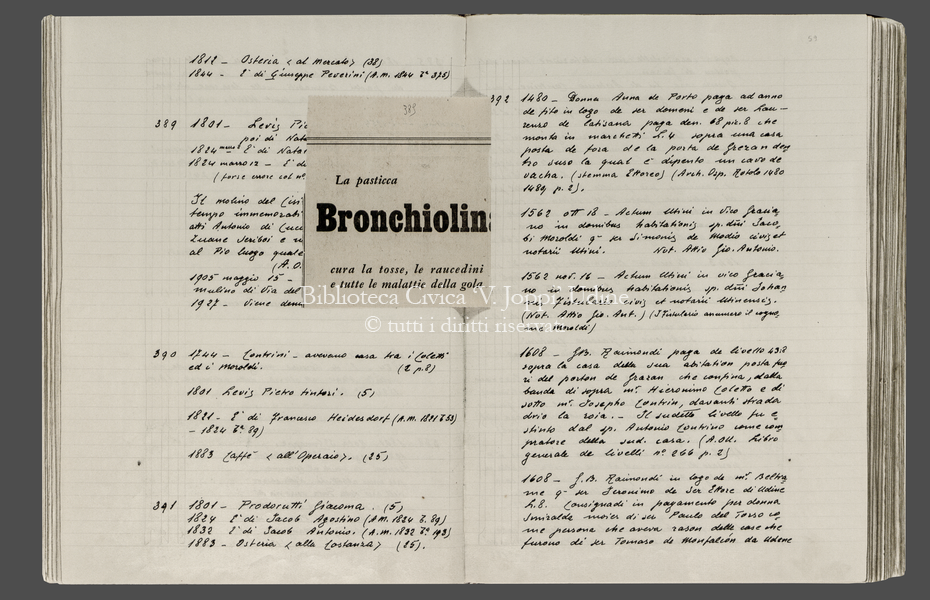 1812 - Osteria <al Mercato> (38)
1844 - E' di Giuseppe Peverini (A.M. 1844 T° 375)
389 1801 - Levis Pie
poi di Nata
1824 E' di Nata
1824 marzo 12 - E' d
(forse errore col n°
Il molino del
tempo immemorati
atti Antonio di
Zuane
al Pio luogo quale
(A.O.
1905 maggio 15 -
mulino di Via del
1927 - viene dem
389
La pasticca
Bronchiolin
cura la tosse, le raucedini
e tutte le malattie della gola
390 1744 - Contrini - avevano casa tra i Coletti
ed i Moroldi. (2 p.2)
1801 Levis Pietro tintori. (5)
1821 - E' di Francesco Heidesdorf (A.M. 1821 T° 53)
- 1824 T° 89)
1883 Caffè <all'Operaio>. (25)
391 1801 - Prodorutti Giacomo. (5)
1824 E' di Jacob Agostino (A.M. 1824 T° 89)
1832 E' di Jacob Antonio. (A.M. 1832 T° 193)
1883 - Osteria <alla Costanza> (25).
59
392 1480 - Donna Anna de Porto paga ad anno
de fito in logo de ser domeni e de ser Lau-
renzo de latisana paga den. 68 piz. 8 che
monta in marchetti L. 4 sopra una casa
posta de fora de la porta de Grezan den
tro suso la qual è dipento un cavo de
vacha. (stemma Ettoreo) (Arch. Osp. Rotolo 1480
1489 p. 2).
1562 ott 18 - Actum Utini in vico Gracia
no in domibus habitationis sp. dni Jaco,
bi Moroldi q. ser Simonis de Modio civis et
notarii Utini. Not. Attio Gio. Antonio.
1562 nov. 16 - Actum Utini in vico Gracia,
no in domibus habitationis sp. dni Johan
nis Fistularis civis et notarii Utinensis.
(Not. Attio Gio. Ant.) (I Fistulario assunsero il cogno,
me Moroldi)
1608 - G.B. Raimondi paga de livello
sopra la casa della sua abitation posta fuo
ri del porton de Grazan che confina, dalla
banda di sopra m. Hieronimo Coletto e di
sotto m. Josepho Contrin, davanti strada
drio la roia. - Il sudetto livello fu e,
stinto dal sp. Antonio Contrino come com
pratore della sud. casa. (A.O.U. Libro
generale de livelli n° 266 p. 2)
1608 - G.B. Raimondi in logo de m. Beltra
me q. ser Jeronimo de ser Ettore di Udine
L. 8. Consignadi in pagamento per donna
Smiralda moier di ser Paulo del Torso co,
me persona che aveva rason delle case che
furono di ser Tomaso de Monfalcon da Udene
Biblioteca Civica "V. Joppi" Udine
© tutti i diritti riservati